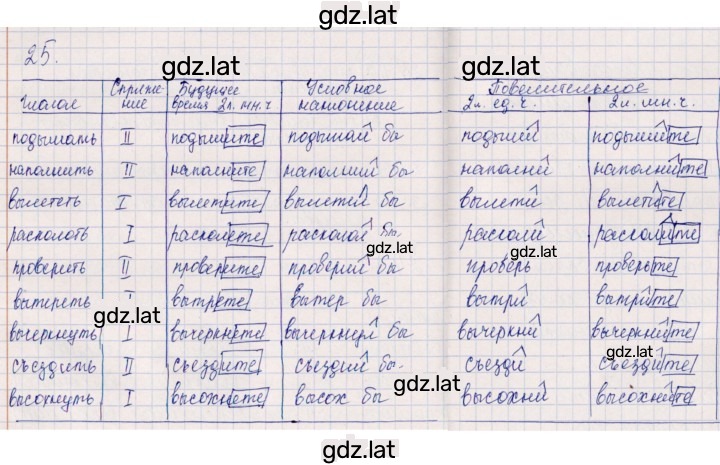 gdz.lat
gdz.lat
25.
Глагол Спряже-ние Будущее время 2л. мн. ч Условное наклонение Повелительное 2л. ед. ч. 2л. мн. ч.
подышать II подышите подышал бы подыши подышите
наполнить II наполните наполнил бы наполни наполните
вылететь I вылетите вылетел бы вылети вылетите
расколоть I расколете расколол бы расколи расколите
gdz.lat gdz.lat
проверить II проверите проверил бы проверь проверьте
вытереть вытрете вытер бы вытри вытрите
gdz.lat gdz.lat
вычеркнуть I вычеркнете вычеркнул бы вычеркни вычеркните
съездить II съездите съездил бы съезди съездите
gdz.lat gdz.lat
высохнуть I высохнете высох бы высохни высохните
gdz.lat